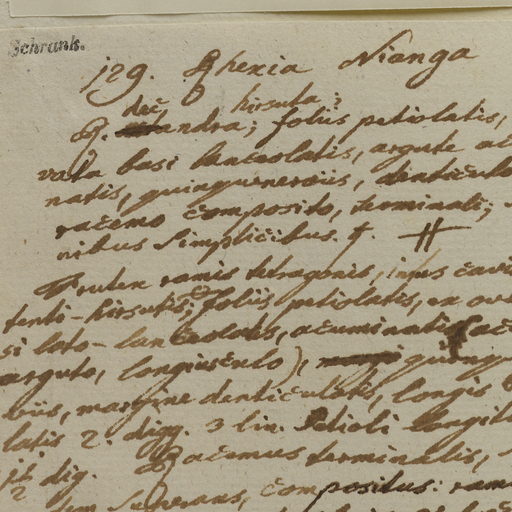 Schrank.
129. Rhexia Nianga
hirsuta;
R. decandra; foliis petiolatis,
vata basi lanceolatis, argute ac
natis, quinquenerviis, denticula
racemo composito, terminali;
nibus simplicibus. †. #
Frutex ramis tetragonis, intus cavi
tenti-hirsutis; foliis petiolatis, ex ova
si lato-lanceolatis, acuminatis (ac
arguto, longiusculo), quinqu
viis, margine denticulatis, longis
latis 2. digg. 3 lin. Petioli longit
dig. Racemus terminalis,
superans, compositus: ram